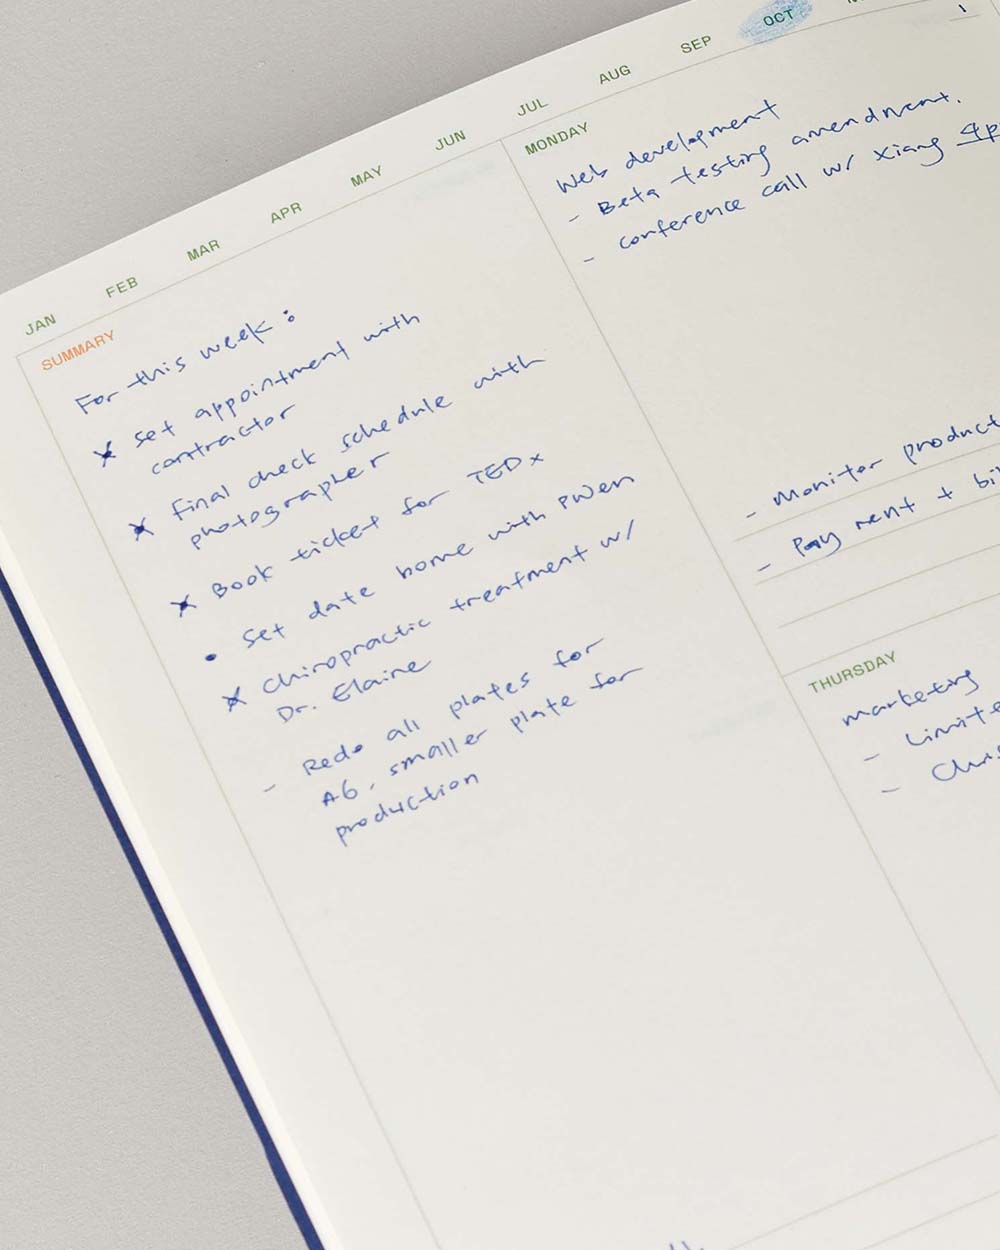 JAN FEB MAR APR MAY JUN JUL AUG SEP OCT
SUMMARY
For this week:
x set appointment with
contractor
x Final check schedule with
photographer
x Book ticket for TEDx
• Set date home with pwen
x Chiropractic treatment w/
Dr. Elaine
- Redo all plates for
A6, smaller plate for
production
MONDAY
1
Web development
- Beta testing amendment.
- conference call w/ Xiang 4p
- Monitor product
- Pay rent + bi
THURSDAY
marketing
- Limite
- Chris